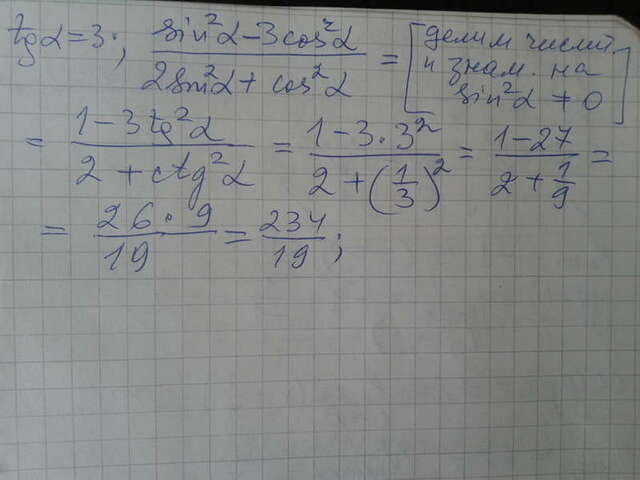 tgα=3; (sin²α-3cos²α)/(2sin²α+cos²α) = [делим числит. и знам. на sin²α≠0
= (1-3tg²α)/(2+ctg²α) = (1-3·3²)/(2+(1/3)²) = (1-27)/(2+1/9) =
= (26·9)/19 = 234/19;